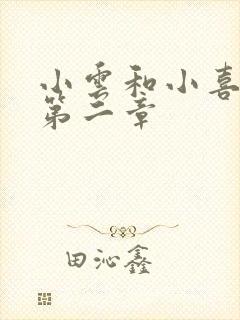 小雲和小喜
第二章
田沁鑫